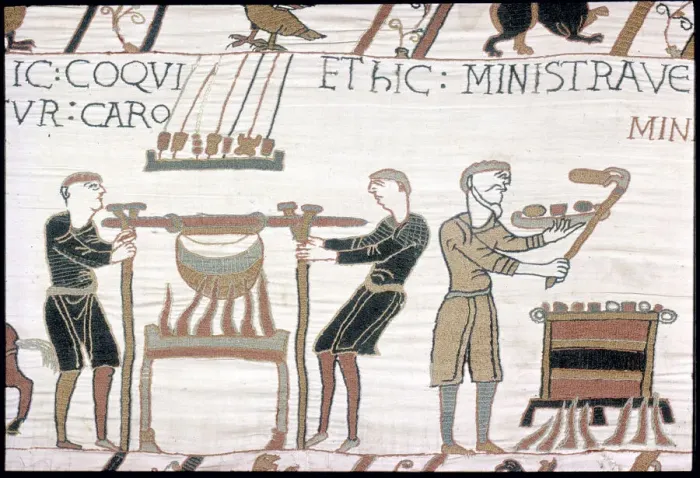 IC: COQVI
ET hIC: MINISTRAVE
TVR: CARO
MIN